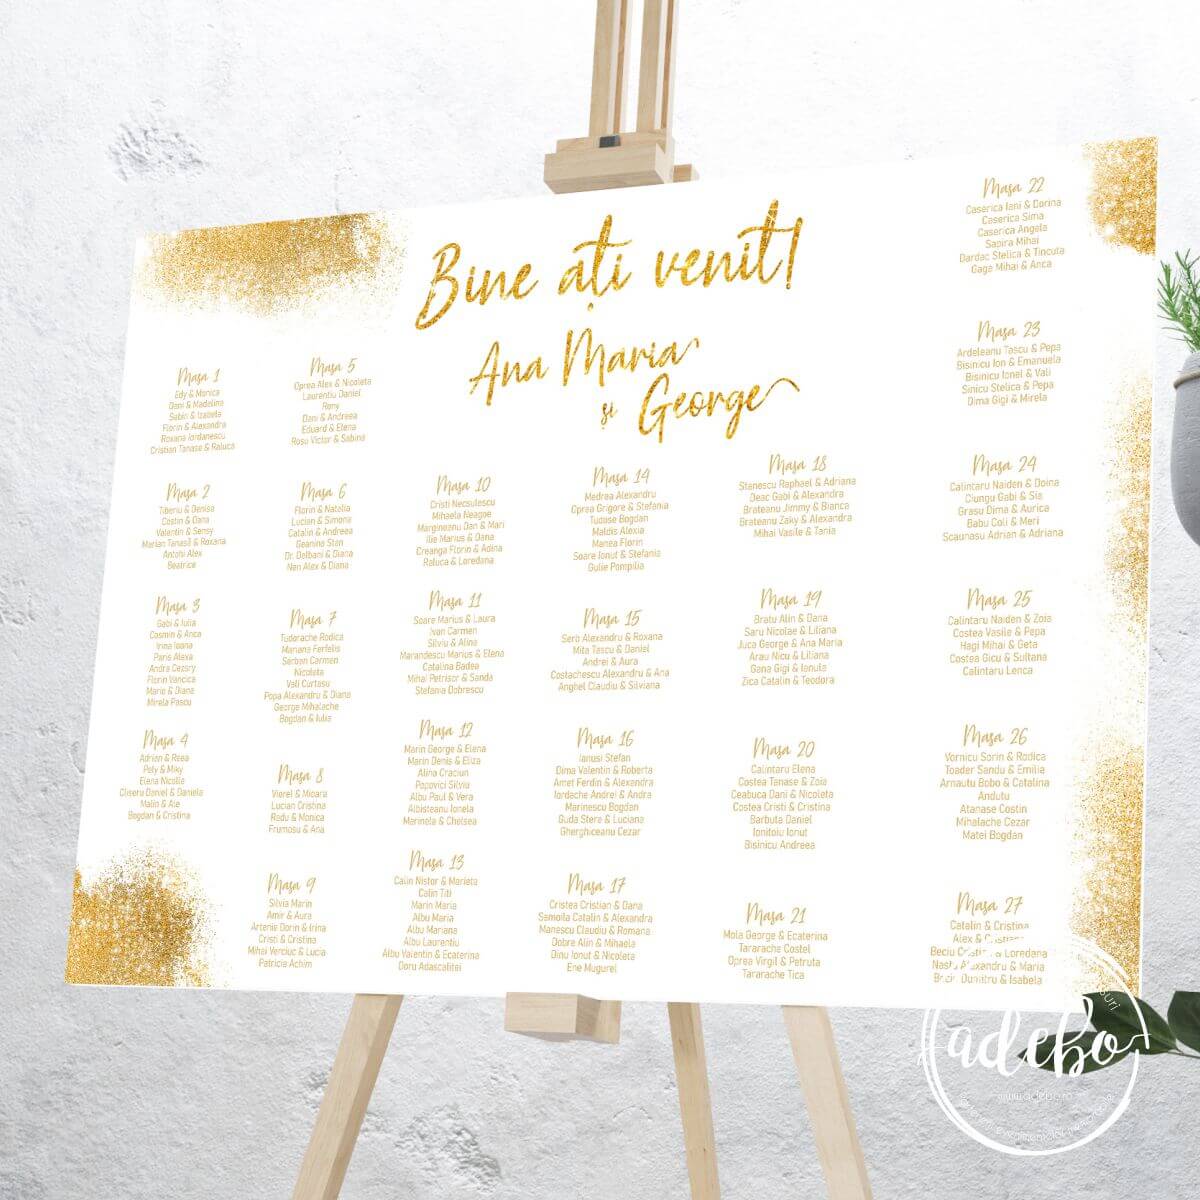 Bine ați venit!
Ana Maria
și George
Masa 1
Edy & Monica
Dani & Madalina
Sabin & Izabela
Florin & Alexandra
Roxana Iordanescu
Cristian Tanase & Raluca
Masa 2
Tiberiu & Denisa
Costin & Dana
Valentin & Sensy
Marian Tanasă & Roxana
Antohi Alex
Beatrice
Masa 3
Gabi & Iulia
Cosmin & Anca
Irina Ioana
Paris Alexa
Andra Cezsry
Florin Vancica
Marie & Diana
Mirela Pascu
Masa 4
Adrian & Reea
Pely & Miky
Elena Nicolle
Cliseru Daniel & Daniela
Malin & Ale
Bogdan & Cristina
Masa 5
Oprea Alex & Nicoleta
Laurentiu Daniel
Romy
Dani & Andreea
Eduard & Elena
Rosu Victor & Sabina
Masa 6
Florin & Natalia
Lucian & Simona
Catalin & Andreea
Geanina Stan
Dr. Delbani & Diana
Nen Alex & Diana
Masa 7
Tudorache Rodica
Mariana Ferfelis
Serban Carmen
Nicoleta
Vali Curtasu
Popa Alexandru & Diana
George Mihalache
Bogdan & Iulia
Masa 8
Viorel & Mioara
Lucian Cristina
Radu & Monica
Frumosu & Ana
Masa 9
Silvia Marin
Amir & Aura
Artenie Dorin & Irina
Cristi & Cristina
Mihai Verciuc & Lucia
Patricia Achim
Masa 10
Cristi Necsulescu
Mihaela Neagoe
Margineanu Dan & Mari
Ilie Marius & Dana
Creanga Florin & Adina
Raluca & Loredana
Masa 11
Soare Marius & Laura
Ivan Carmen
Silviu & Alina
Marandescu Marius & Elena
Catalina Badea
Mihai Petrisor & Sanda
Stefania Dobrescu
Masa 12
Marin George & Elena
Marin Denis & Eliza
Alina Craciun
Popovici Silviu
Albu Paul & Vera
Albisteanu Ionela
Marinela & Chelsea
Masa 13
Calin Nistor & Marieta
Calin Titi
Marin Maria
Albu Maria
Albu Mariana
Albu Laurentiu
Albu Valentin & Ecaterina
Doru Adascalitei
Masa 14
Medrea Alexandru
Oprea Grigore & Stefania
Tudose Bogdan
Maldis Alexia
Manea Florin
Soare Ionut & Stefania
Gulie Pompilia
Masa 15
Serb Alexandru & Roxana
Mita Tascu & Daniel
Andrei & Aura
Costachescu Alexandru & Ana
Anghel Claudiu & Silviana
Masa 16
Ianusi Stefan
Dima Valentin & Roberta
Amet Ferdin & Alexandra
Iordache Andrei & Andra
Marinescu Bogdan
Guda Stere & Luciana
Gherghiceanu Cezar
Masa 17
Cristea Cristian & Dana
Samoila Catalin & Alexandra
Manescu Claudiu & Romana
Dobre Alin & Mihaela
Dinu Ionut & Nicoleta
Ene Mugurel
Masa 18
Stanescu Raphael & Adriana
Deac Gabi & Alexandra
Brateanu Jimmy & Bianca
Brateanu Zaky & Alexandra
Mihai Vasile & Tania
Masa 19
Bratu Alin & Dana
Saru Nicolae & Liliana
Juca George & Ana Maria
Arau Nicu & Liliana
Gana Gigi & Ianula
Zica Catalin & Teodora
Masa 20
Calintaru Elena
Costea Tanase & Zoia
Ceabuca Dani & Nicoleta
Costea Cristi & Cristina
Barbuta Daniel
Ionitoiu Ionut
Bisinicu Andreea
Masa 21
Mola George & Ecaterina
Tararache Costel
Oprea Virgil & Petruta
Tararache Tica
Masa 22
Caserica Iani & Dorina
Caserica Sima
Caserica Angela
Sapira Mihai
Dardac Stelica & Tincuta
Gaga Mihai & Anca
Masa 23
Ardeleanu Tascu & Pepa
Bisinicu Ion & Emanuela
Bisinicu Ionel & Vali
Sinicu Stelica & Pepa
Dima Gigi & Mirela
Masa 24
Calintaru Naiden & Doina
Ciungu Gabi & Sia
Grasu Dima & Aurica
Babu Coli & Meri
Scaunasu Adrian & Adriana
Masa 25
Calintaru Naiden & Zoia
Costea Vasile & Pepa
Hagi Mihai & Geta
Costea Gicu & Sultana
Calintaru Lenca
Masa 26
Vornicu Sorin & Rodica
Toader Sandu & Emilia
Arnautu Bobo & Catalina
Andutu
Atanase Costin
Mihalache Cezar
Matei Bogdan
Masa 27
Catalin & Cristina
Alex & Cristina
Beciu Cristian & Loredana
Nastu Alexandru & Maria
Dumitru & Isabela
adebo
www.adebo.ro